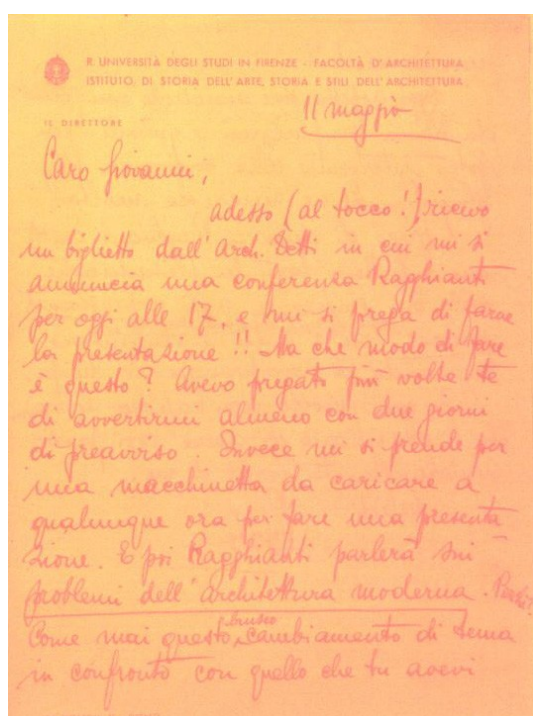 R. UNIVERSITÀ DEGLI STUDI IN FIRENZE - FACOLTÀ D'ARCHITETTURA
ISTITUTO DI STORIA DELL'ARTE, STORIA E STILI DELL'ARCHITETTURA
IL DIRETTORE
11 maggio
Caro Giovanni,
adesso (al tocco!) ricevo
un biglietto dall'Arch. Detti in cui mi si
annuncia una conferenza Ragghianti
per oggi alle 17, e mi si prega di farne
la presentazione!! Ma che modo di fare
è questo? Avevo pregato più volte te
di avvertirmi almeno con due giorni
di preavviso. Invece mi si prende per
una macchinetta da caricare a
qualunque ora per fare una presenta
zione. E poi Ragghianti parlerà sui
problemi dell'architettura moderna. Perché?
Come mai questo brusco cambiamento di tema
in confronto con quello che tu avevi